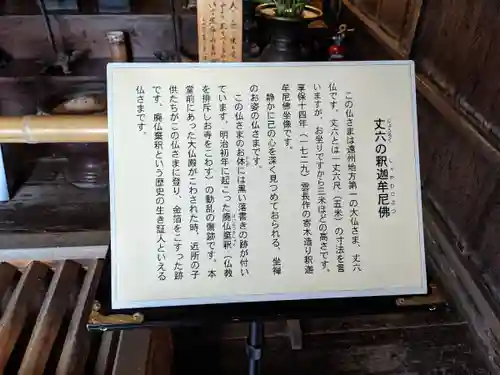 丈六の釈迦牟尼佛
この仏さまは遠州地方第一の大仏さま、丈六
仏です。丈六とは一丈六尺（五米）の寸法を言
いますが、お坐りですから三米ほどの高さです。
享保十四年（一七二九）雲長作の寄木造り釈迦
牟尼佛坐像です。
静かに己の心を深く見つめておられる、坐禅
のお姿の仏さまです。
この仏さまのお体には黒い落書きの跡が付い
ています。明治初年に起こった廃仏棄釈（仏教
を排斥しお寺をこわす）の動乱の傷跡です。本
堂前にあった大仏殿がこわされた時、近所の子
供たちがこの仏さまに登り、金箔をこすった跡
です。廃仏棄釈という歴史の生き証人といえる
仏さまです。